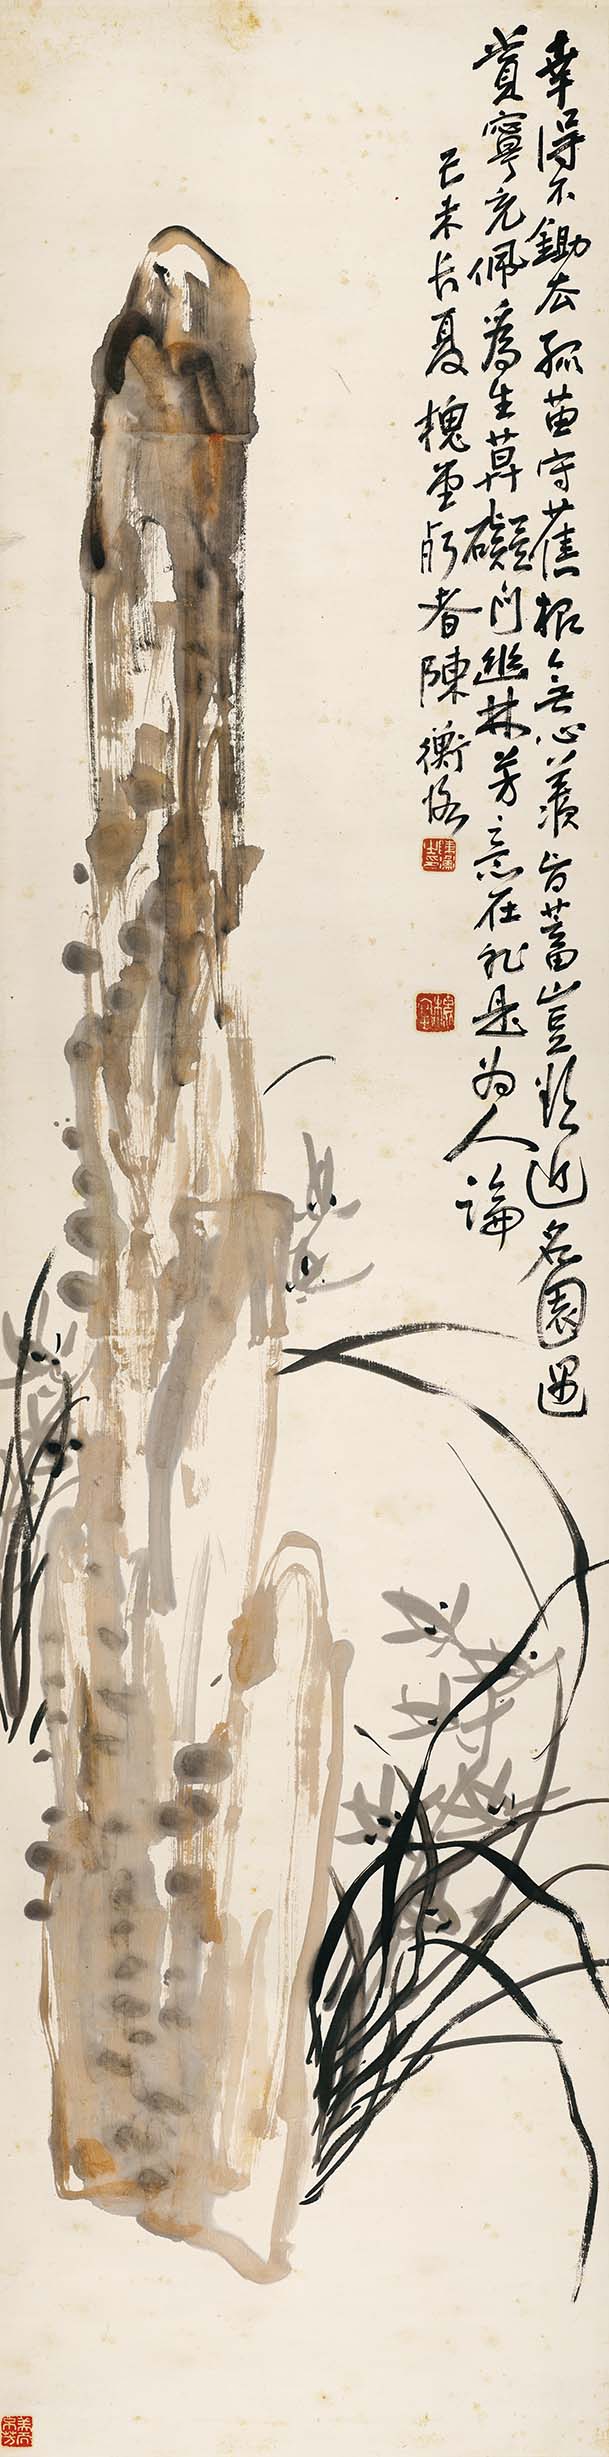 幸得不鋤去孤苗守舊根無心羨旨蓄豈欲近名園遇
賞寧充佩爲生莫礙門幽林芳意在非是为人論
己未長夏槐堂朽者陳衡恪